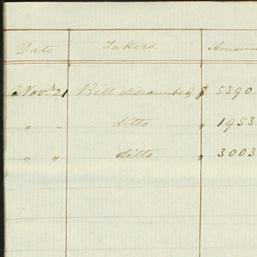 Date Takers Amoun
Nov.r 21 Bill discounted $ 5390.
" " ditto " 1953
" " ditto " 3003